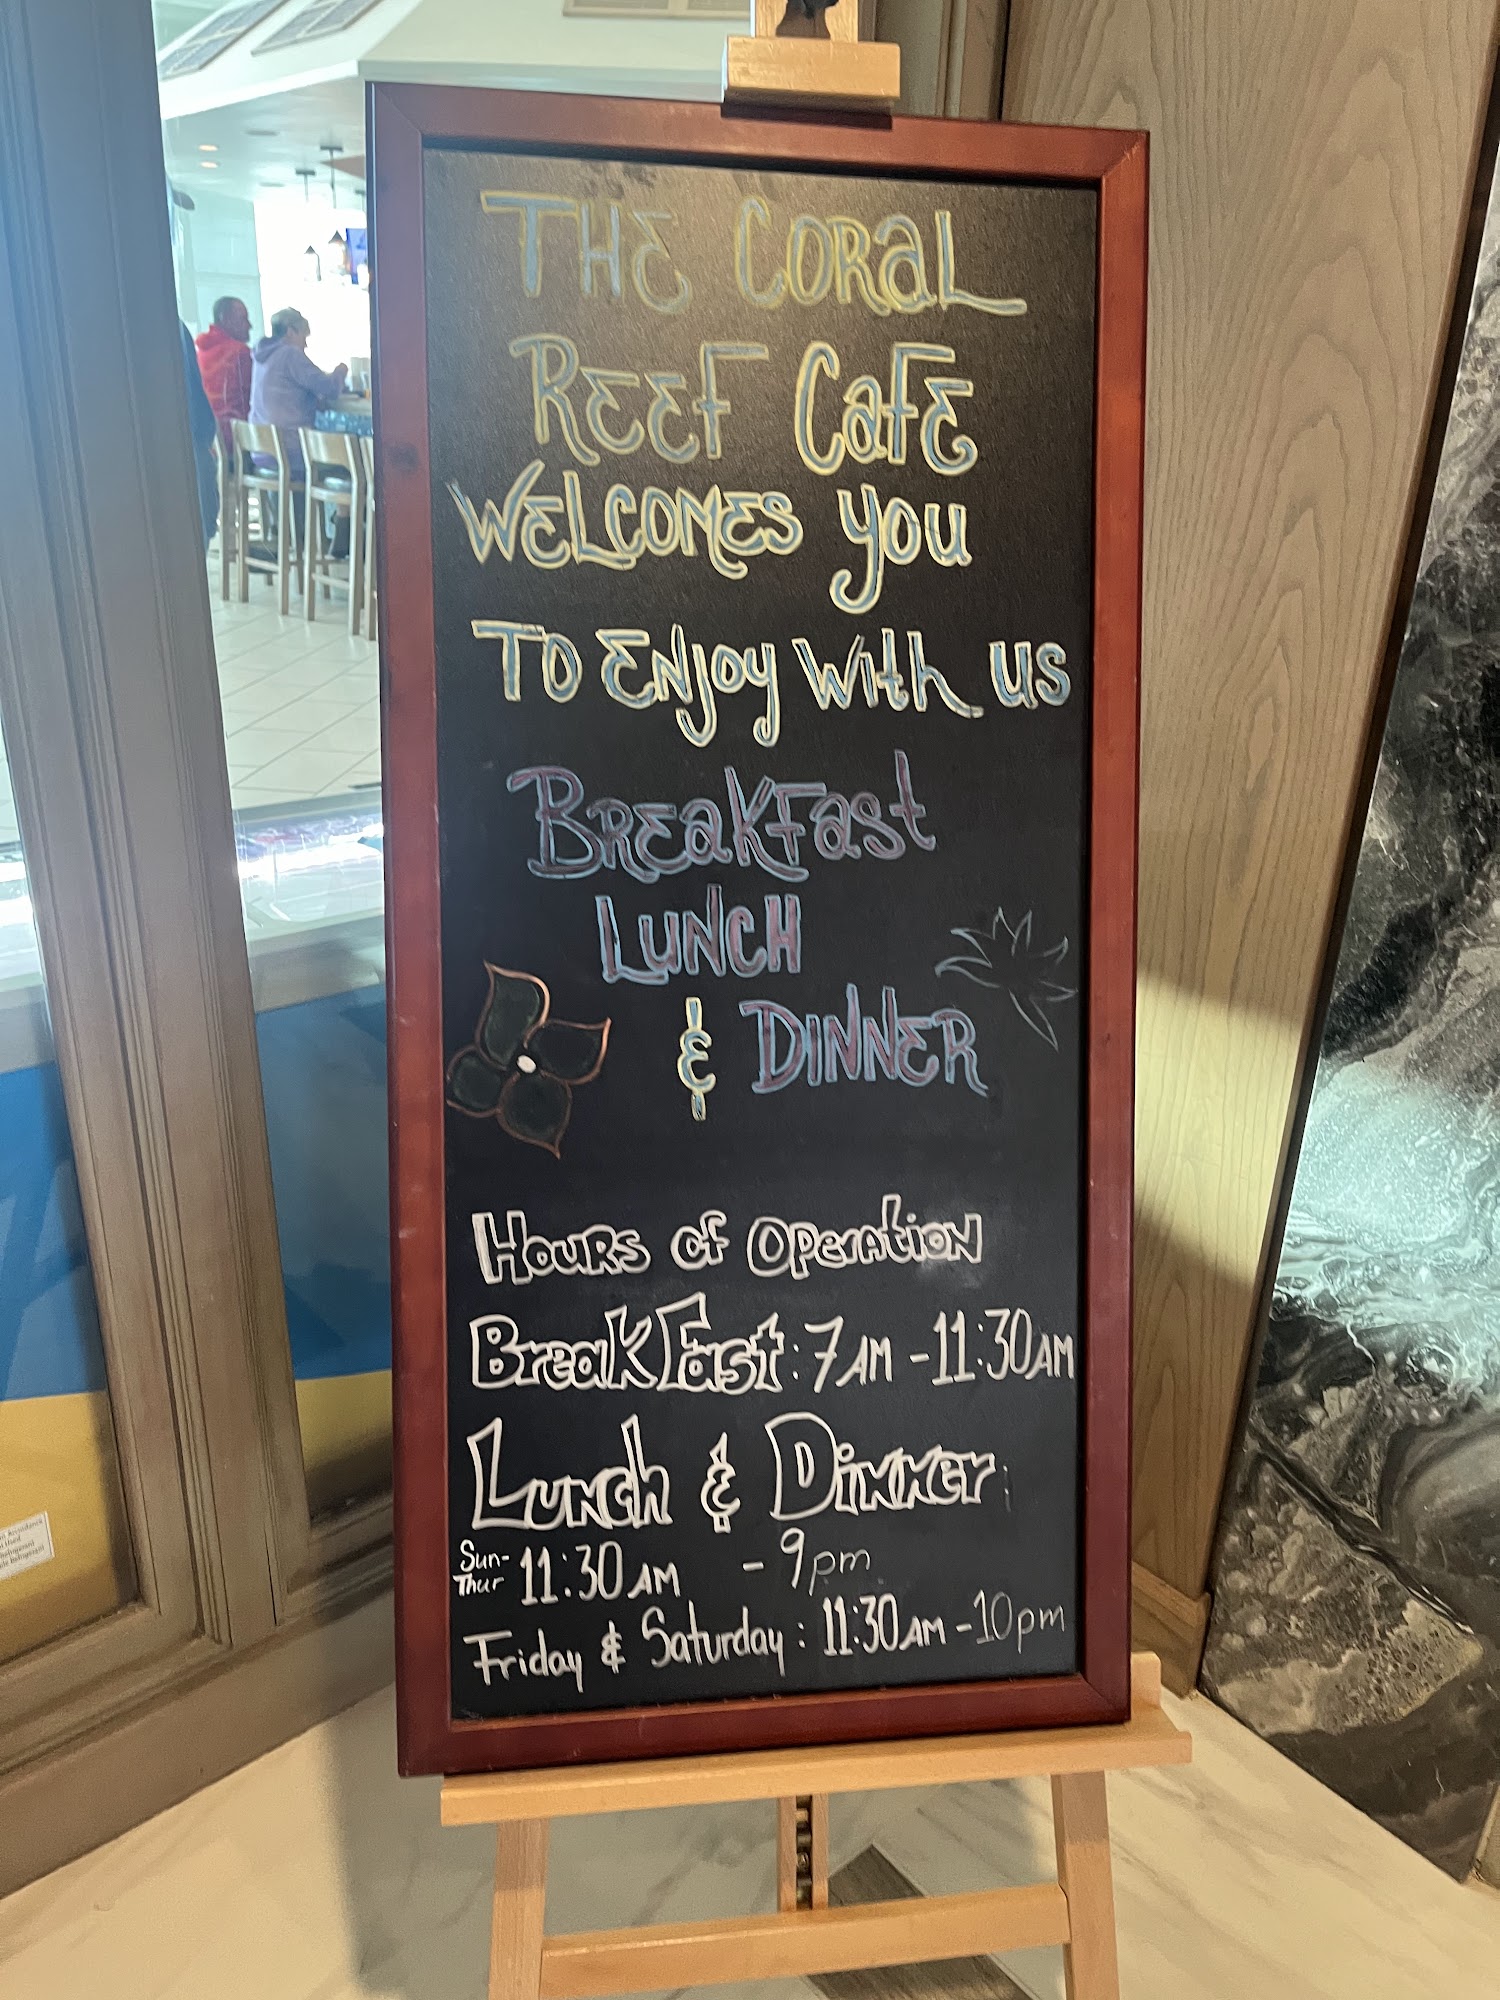 THE CORAL
REEF CAFE
WELCOMES YOU
TO ENJOY WITH US
BREAKFAST
LUNCH
& DINNER
HOURS OF OPERATION
BREAKFAST: 7AM - 11:30AM
LUNCH & DINNER:
Sun- 11:30AM - 9pm
Thur
Friday & Saturday: 11:30AM - 10pm